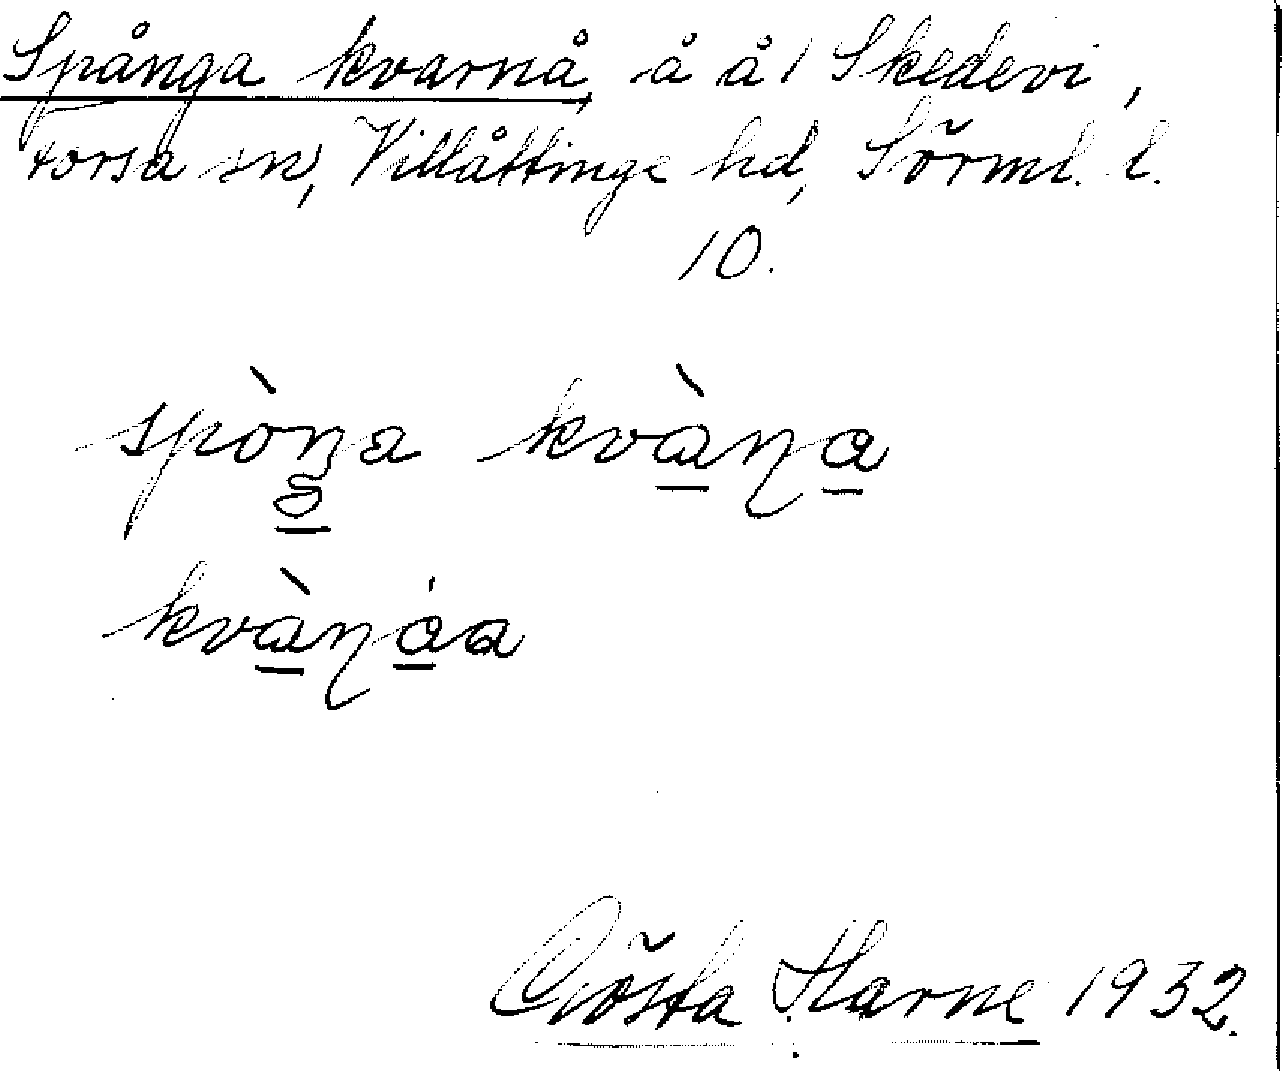 Spånga kvarnå, å å 1 Skedevi,
torsa sn, Villåttinge hd, Sörml. l.
10.
spòŋa kvàɳa
kvàɳáa
Gösta Harne 1932.